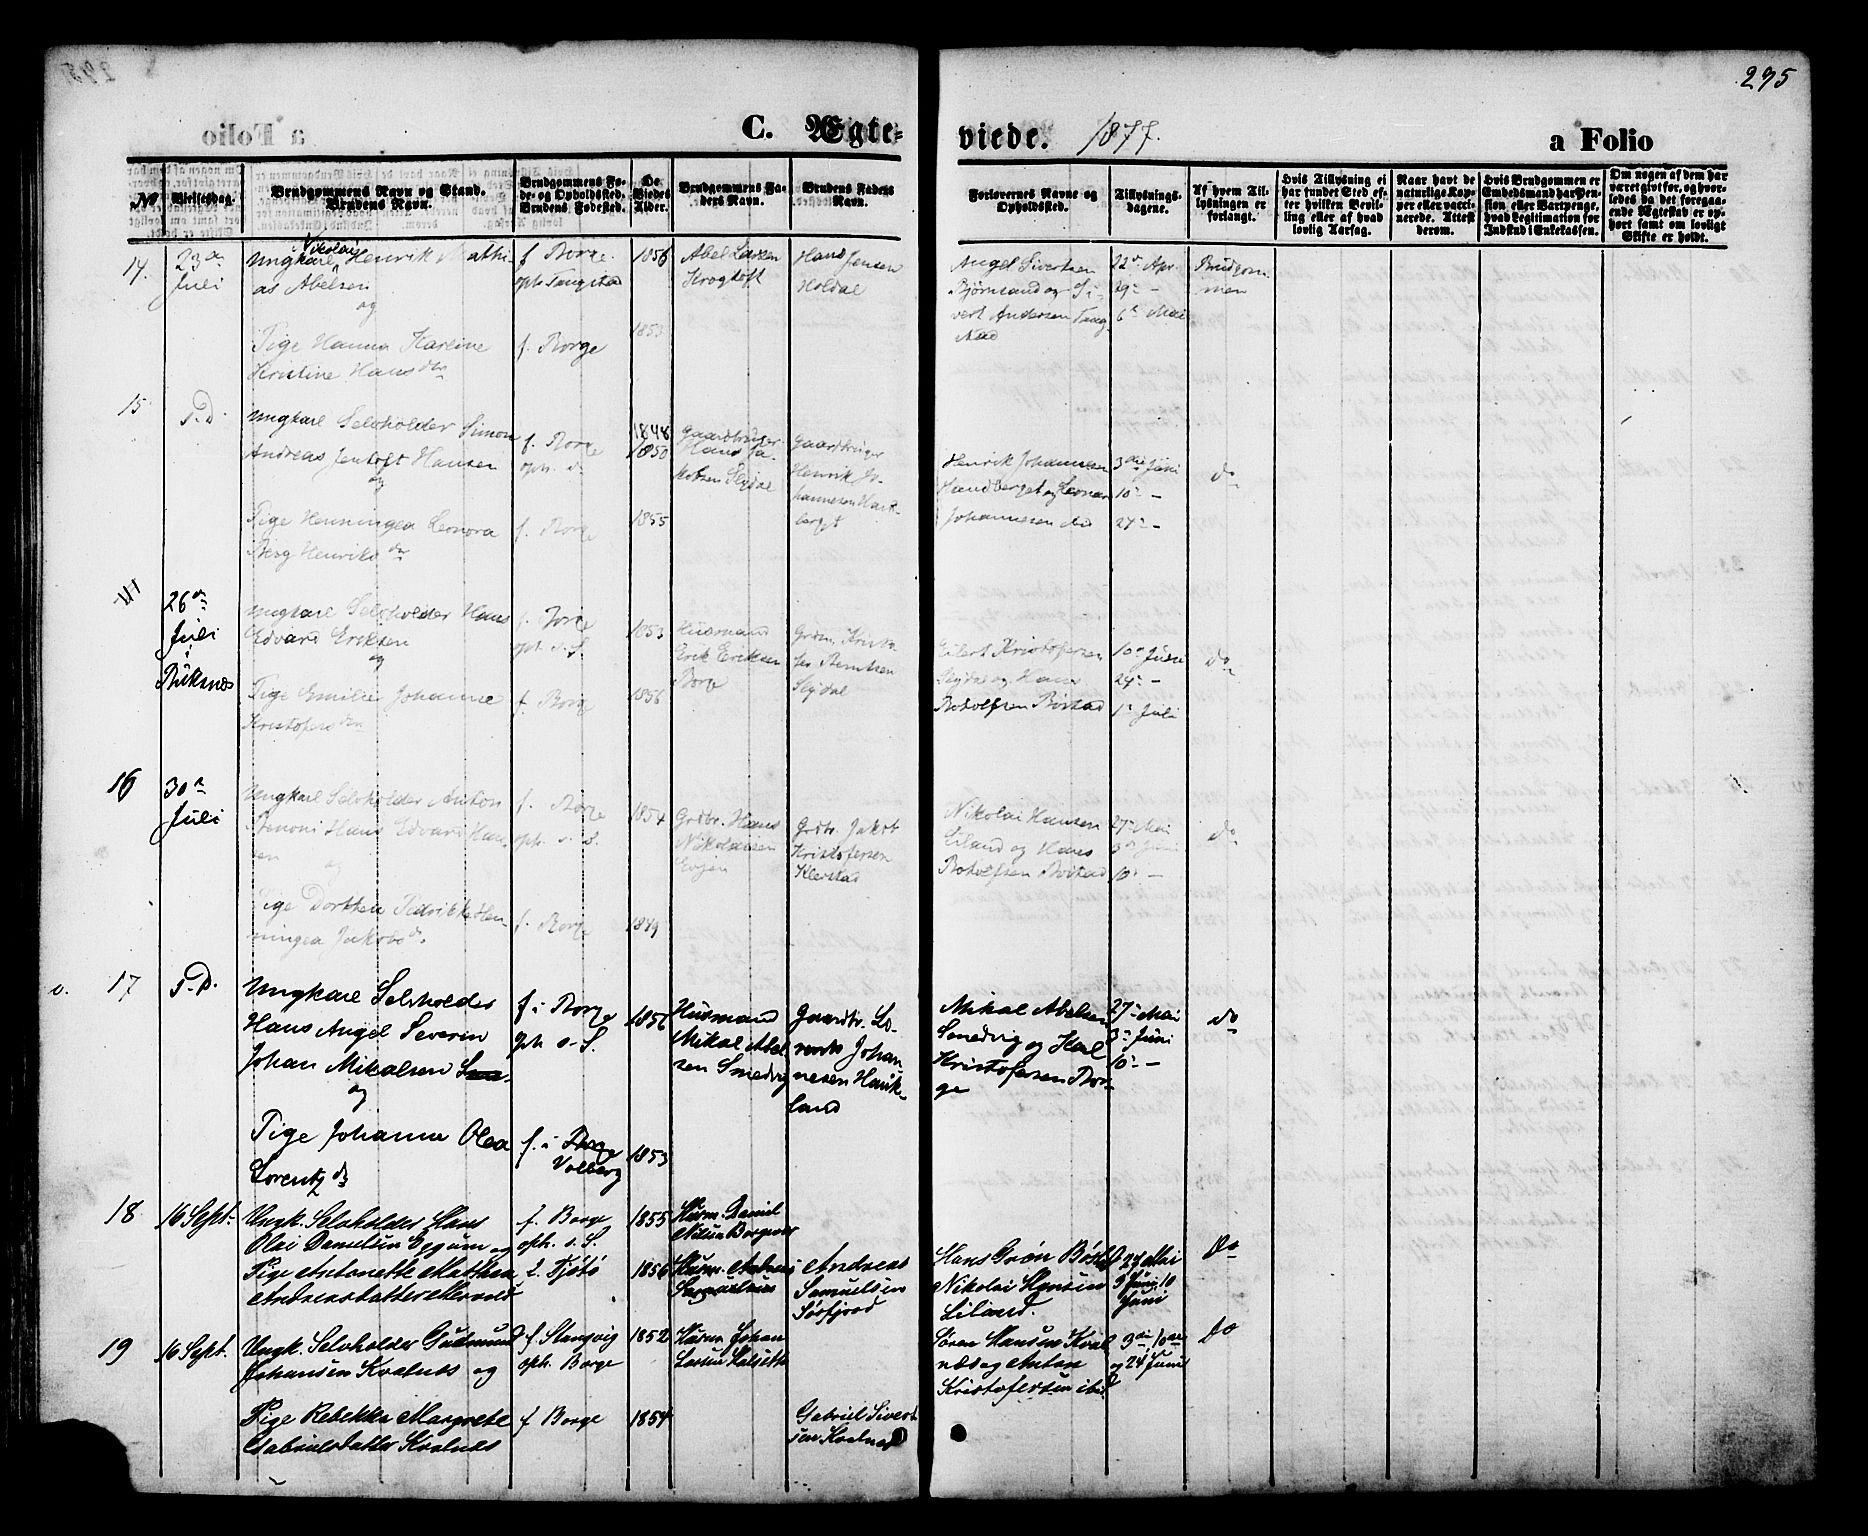 295
a Folio
C. Ægte=
viede. 1877.
a Folio
No
Vielsesdag.
Brudgommens Navn og Stand.
Brudens Navn.
Brudgommens Fø-
de- og Opholdssted.
Brudens Fødested.
De
Viedes
Alder.
Brudgommens Fa-
ders Navn.
Brudens Faders
Navn.
Forlovernes Navne og
Opholdssted.
Tillysnings-
dagene.
Af hvem Til-
lysningen er
forlangt.
Hvis Tillysning ei
har fundet Sted ef-
ter hvilken Bevil-
ling eller af hvad
lovlig Aarsag.
Naar havt de
naturlige Kop-
per eller vacci-
nerede. Attest
derom.
Hvis Brudgommen er
Embedsmand har Pen-
sion eller Vartpenge,
hvad Legitimation for
Indskud i Enkekassen.
Om nogen af dem har
været givt før, og hvor-
ledes da det foregaa-
ende Ægtestad er op-
hørt samt om lovligt
Skifte er holdt.
14.
23de
Juli
Nikolai
Ungkarl Henrik Mathi-
as Abelsen
og
Pige Hanna Kareine
Kristine Hansdtr
f. Borge
oph. Tangstad
f. Borge
1856
1853
Abel Larsen
Krogtoft
Hans Jensen
Holdal
Angel Sivertsen
Bjørnsand og Si-
vert Andersen Tang-
stad
22de Apr.
29de -
6te Mai
Brudgom-
men
15.
S.D.
Ungkarl Selvholder Simon
Andreas Jentoft Hansen
og
Pige Henningea Leonora
Berg Henriksdtr
f. Borge
oph. do
f. Borge
1848
1850
1855
Gaardbruger
Hans Ja-
kobsen Slydal
Gaardbruger
Henrik Jo-
hannesen
Henrik Johannesen
Johannesen do
3die Juni
10de -
24de -
do
26de
Juli
i
Buksnes
Ungkarl Selvholder Hans
Edvard Eriksen
og
Pige Emilie Johanne
Kristofersdtr
f. Borge
oph. s. S.
f. Borge
1853
1856
Husmand
Erik Eriksen
Borge
Grdm. Kristo-
fer Berntsen
Slydal
Eilert Kristofersen
Slydal og Hans
Rotolfsen Bøstad
10de Juni
24de -
1ste Juli
do
16
30te
Juli
Ungkarl Selvholder Anton
Benoni Hans Edvard Han-
sen
og
Pige Dorthea Fredrikke Hen-
ningea Jakobsdtr
f. Borge
oph. s. S.
f. Borge
1854
1849
Grdbr. Hans
Nikolaisen
Evjen
Grdbr. Jakob
Kristofersen
Klerstad
Nikolai Hansen
Liland og Hans
Rotolfsen Bøstad
27de Mai
3die Juni
10de -
do
v.
17
S.D.
Ungkarl Selvholder
Hans Angel Severin
Johan Mikalsen
og
Pige Johanna Olea
Lorentzdtr
f. i Borge
oph. s. S.
f. i Borge
Volberg
1856
1853
Husmand
Mikal Abel-
sen Smedvig
Gaardbr. Lo-
rents Johan-
nesen Hauke-
land
Mikal Abelsen
Smedvig og Karl
Kristofersen Bor-
ge
27de Mai
3die Juni
10de -
do
18
16 Sept.
Ungk. Selvholder Hans
Olai Danielsen Eggum og
Pige Antonette Mathea
Andreasdatter
f. Borge
oph. s. S.
f. Tjøtø
1855
1856
Husm. Daniel
Nilsen
Husm. Andreas
Samuelsen
Andreas
Samuelsen
Sørfjord
Hans Grøn Bøstad
Nikolai Hansen
Liland.
27 Mai
3 Juni, 10
Juni
Do
19
16 Sept.
Ungk. Selvholder Gudmund
Johansen Kvalnes og
Pige Rebekka Margrete
Gabrielsdatter Kvalnes
f. Stangvig
oph. Borge
f. Borge
1852
1854
Husm. Johan
Larsen Halseth
Gabriel Sivert-
sen Kvalnes
Søren Hansen Kval-
nes og Anton
Kristofersen ibid
3die, 10de
og 24 Juni
Do